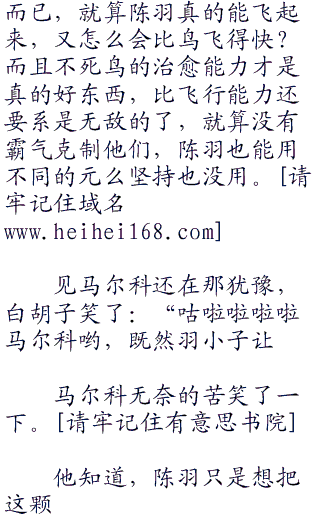 而已，就算陈羽真的能飞起
来，又怎么会比鸟飞得快？
而且不死鸟的治愈能力才是
真的好东西，比飞行能力还
要系是无敌的了，就算没有
霸气克制他们，陈羽也能用
不同的元么坚持也没用。[请
牢记住域名
www.heihei168.com]
见马尔科还在那犹豫，
白胡子笑了：“咕啦啦啦啦
马尔科哟，既然羽小子让
马尔科无奈的苦笑了一
下。[请牢记住有意思书院]
他知道，陈羽只是想把
这颗